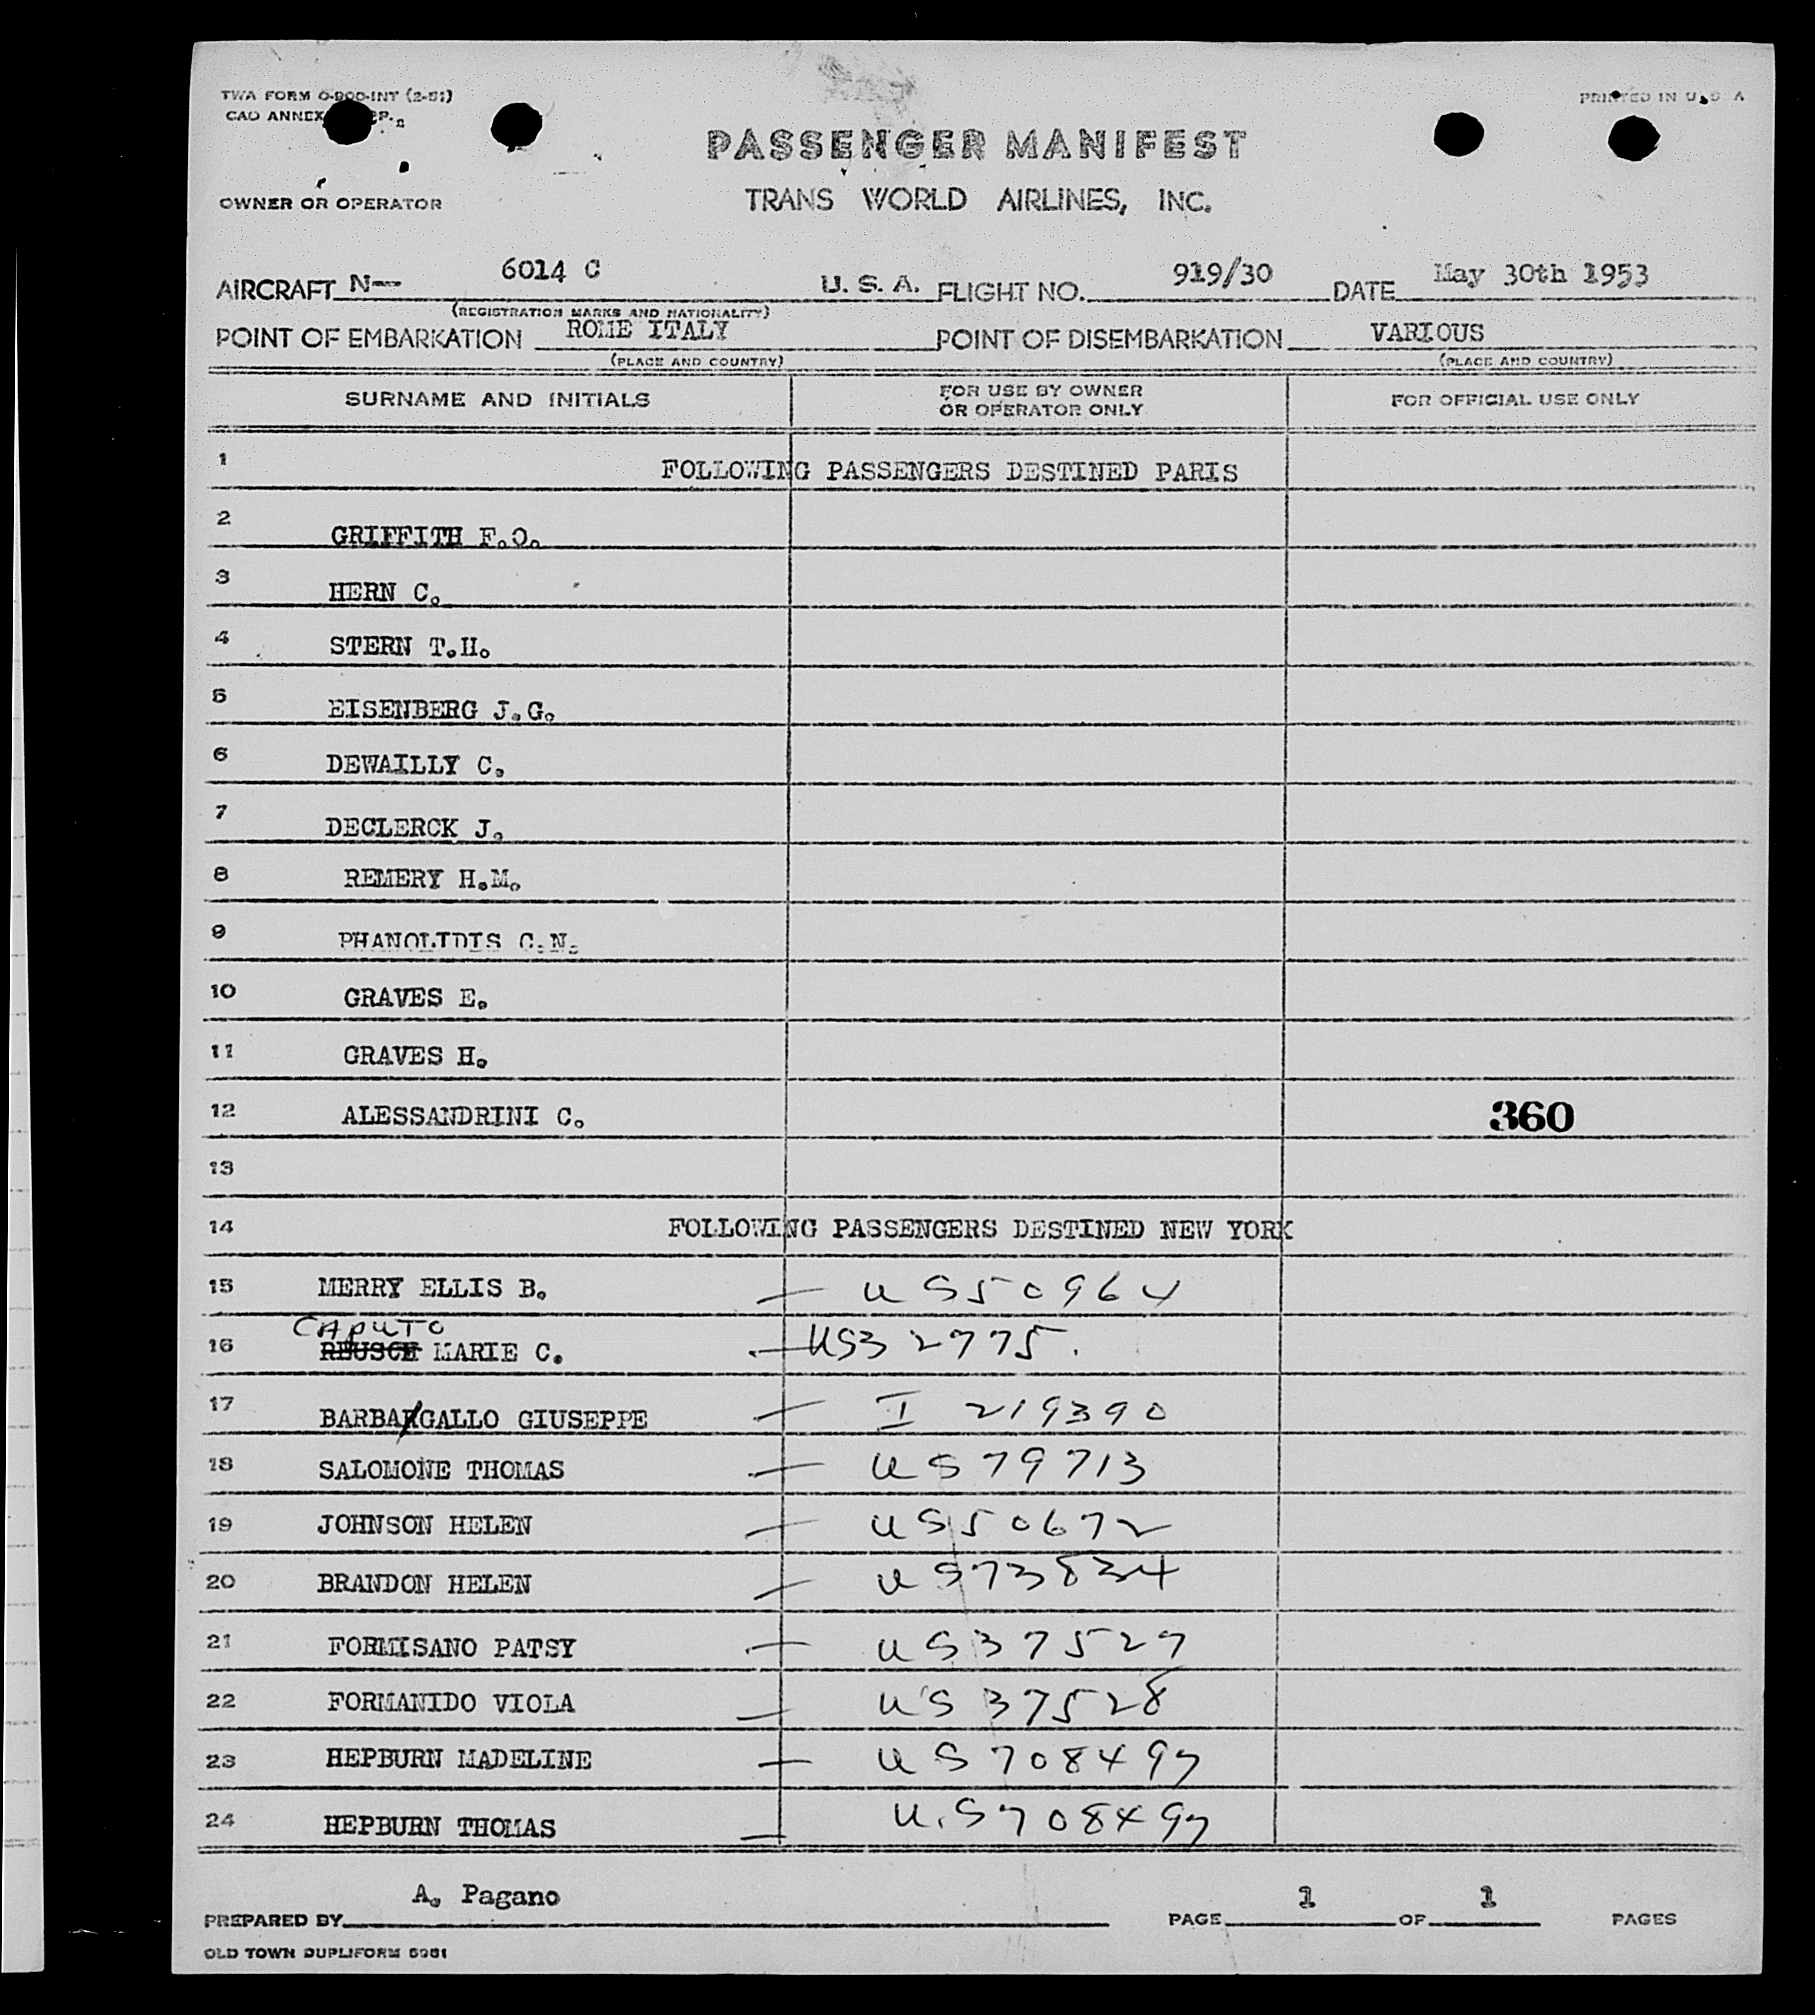 TWA FORM O-900-INT (2-51)
PRINTED IN U.S.A
CAO ANNEX
PASSENGER MANIFEST
OWNER OR OPERATOR
TRANS WORLD AIRLINES, INC.
AIRCRAFT N-- 6014 C U. S. A. FLIGHT NO. 919/30 DATE May 30th 1953
(REGISTRATION MARKS AND NATIONALITY)
POINT OF EMBARKATION ROME ITALY POINT OF DISEMBARKATION VARIOUS
(PLACE AND COUNTRY) (PLACE AND COUNTRY)
SURNAME AND INITIALS FOR USE BY OWNER OR OPERATOR ONLY FOR OFFICIAL USE ONLY
1 FOLLOWING PASSENGERS DESTINED PARIS
2 GRIFFITH F.O.
3 HERN C.
4 STERN T.H.
5 EISENBERG J.G.
6 DEWAILLY C.
7 DECLERCK J.
8 REMERY H.M.
9 PHANOLIDIS C.N.
10 GRAVES E.
11 GRAVES H.
12 ALESSANDRINI C. 360
13
14 FOLLOWING PASSENGERS DESTINED NEW YORK
15 MERRY ELLIS B. — US 50964
CAPUTO
16 REUSCH MARIE C. — US 32775.
17 BARBARGALLO GIUSEPPE — I 219390
18 SALOMONE THOMAS — US 79713
19 JOHNSON HELEN — US 50672
20 BRANDON HELEN — US 73834
21 FORMISANO PATSY — US 37527
22 FORMANIDO VIOLA — US 37528
23 HEPBURN MADELINE — US 708497
24 HEPBURN THOMAS — U.S 708497
PREPARED BY A. Pagano PAGE 1 OF 1 PAGES
OLD TOWN DUPLIFORM